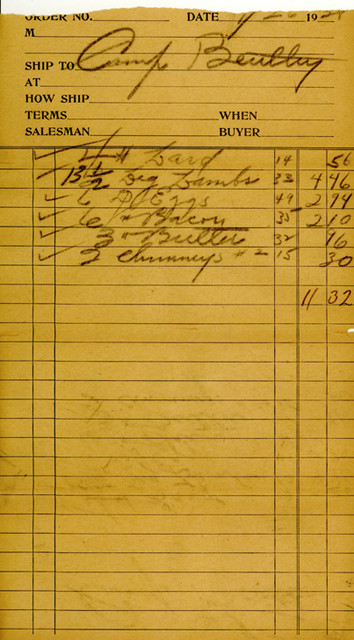 ORDER NO. DATE 19
M
SHIP TO Camp Bentley
AT
HOW SHIP
TERMS WHEN
SALESMAN BUYER
4 # Lard 14 56
13 1/2 Leg Lambs 33 4 46
6 D Eggs 49 2 94
6 # Bacon 35 2 10
3 # Butter 32 96
2 Chimneys # 2 15 30
11 32